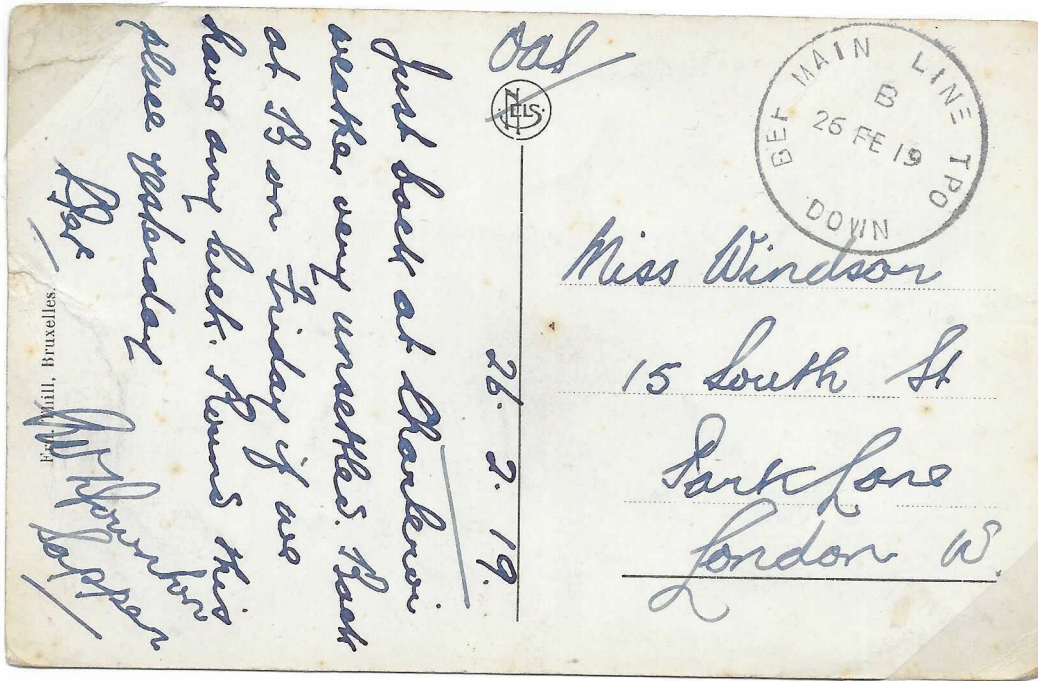 OAS
NELS
BEF MAIN LINE TPO
B
26 FE 19
DOWN
Miss Windsor
15 South St
Park Lane
London W.
26. 2. 19.
Just back at Charleroi
weather very unsettled. Back
at B on Friday if we
have any luck. Round this
place yesterday
Thill, Bruxelles.
Sapper